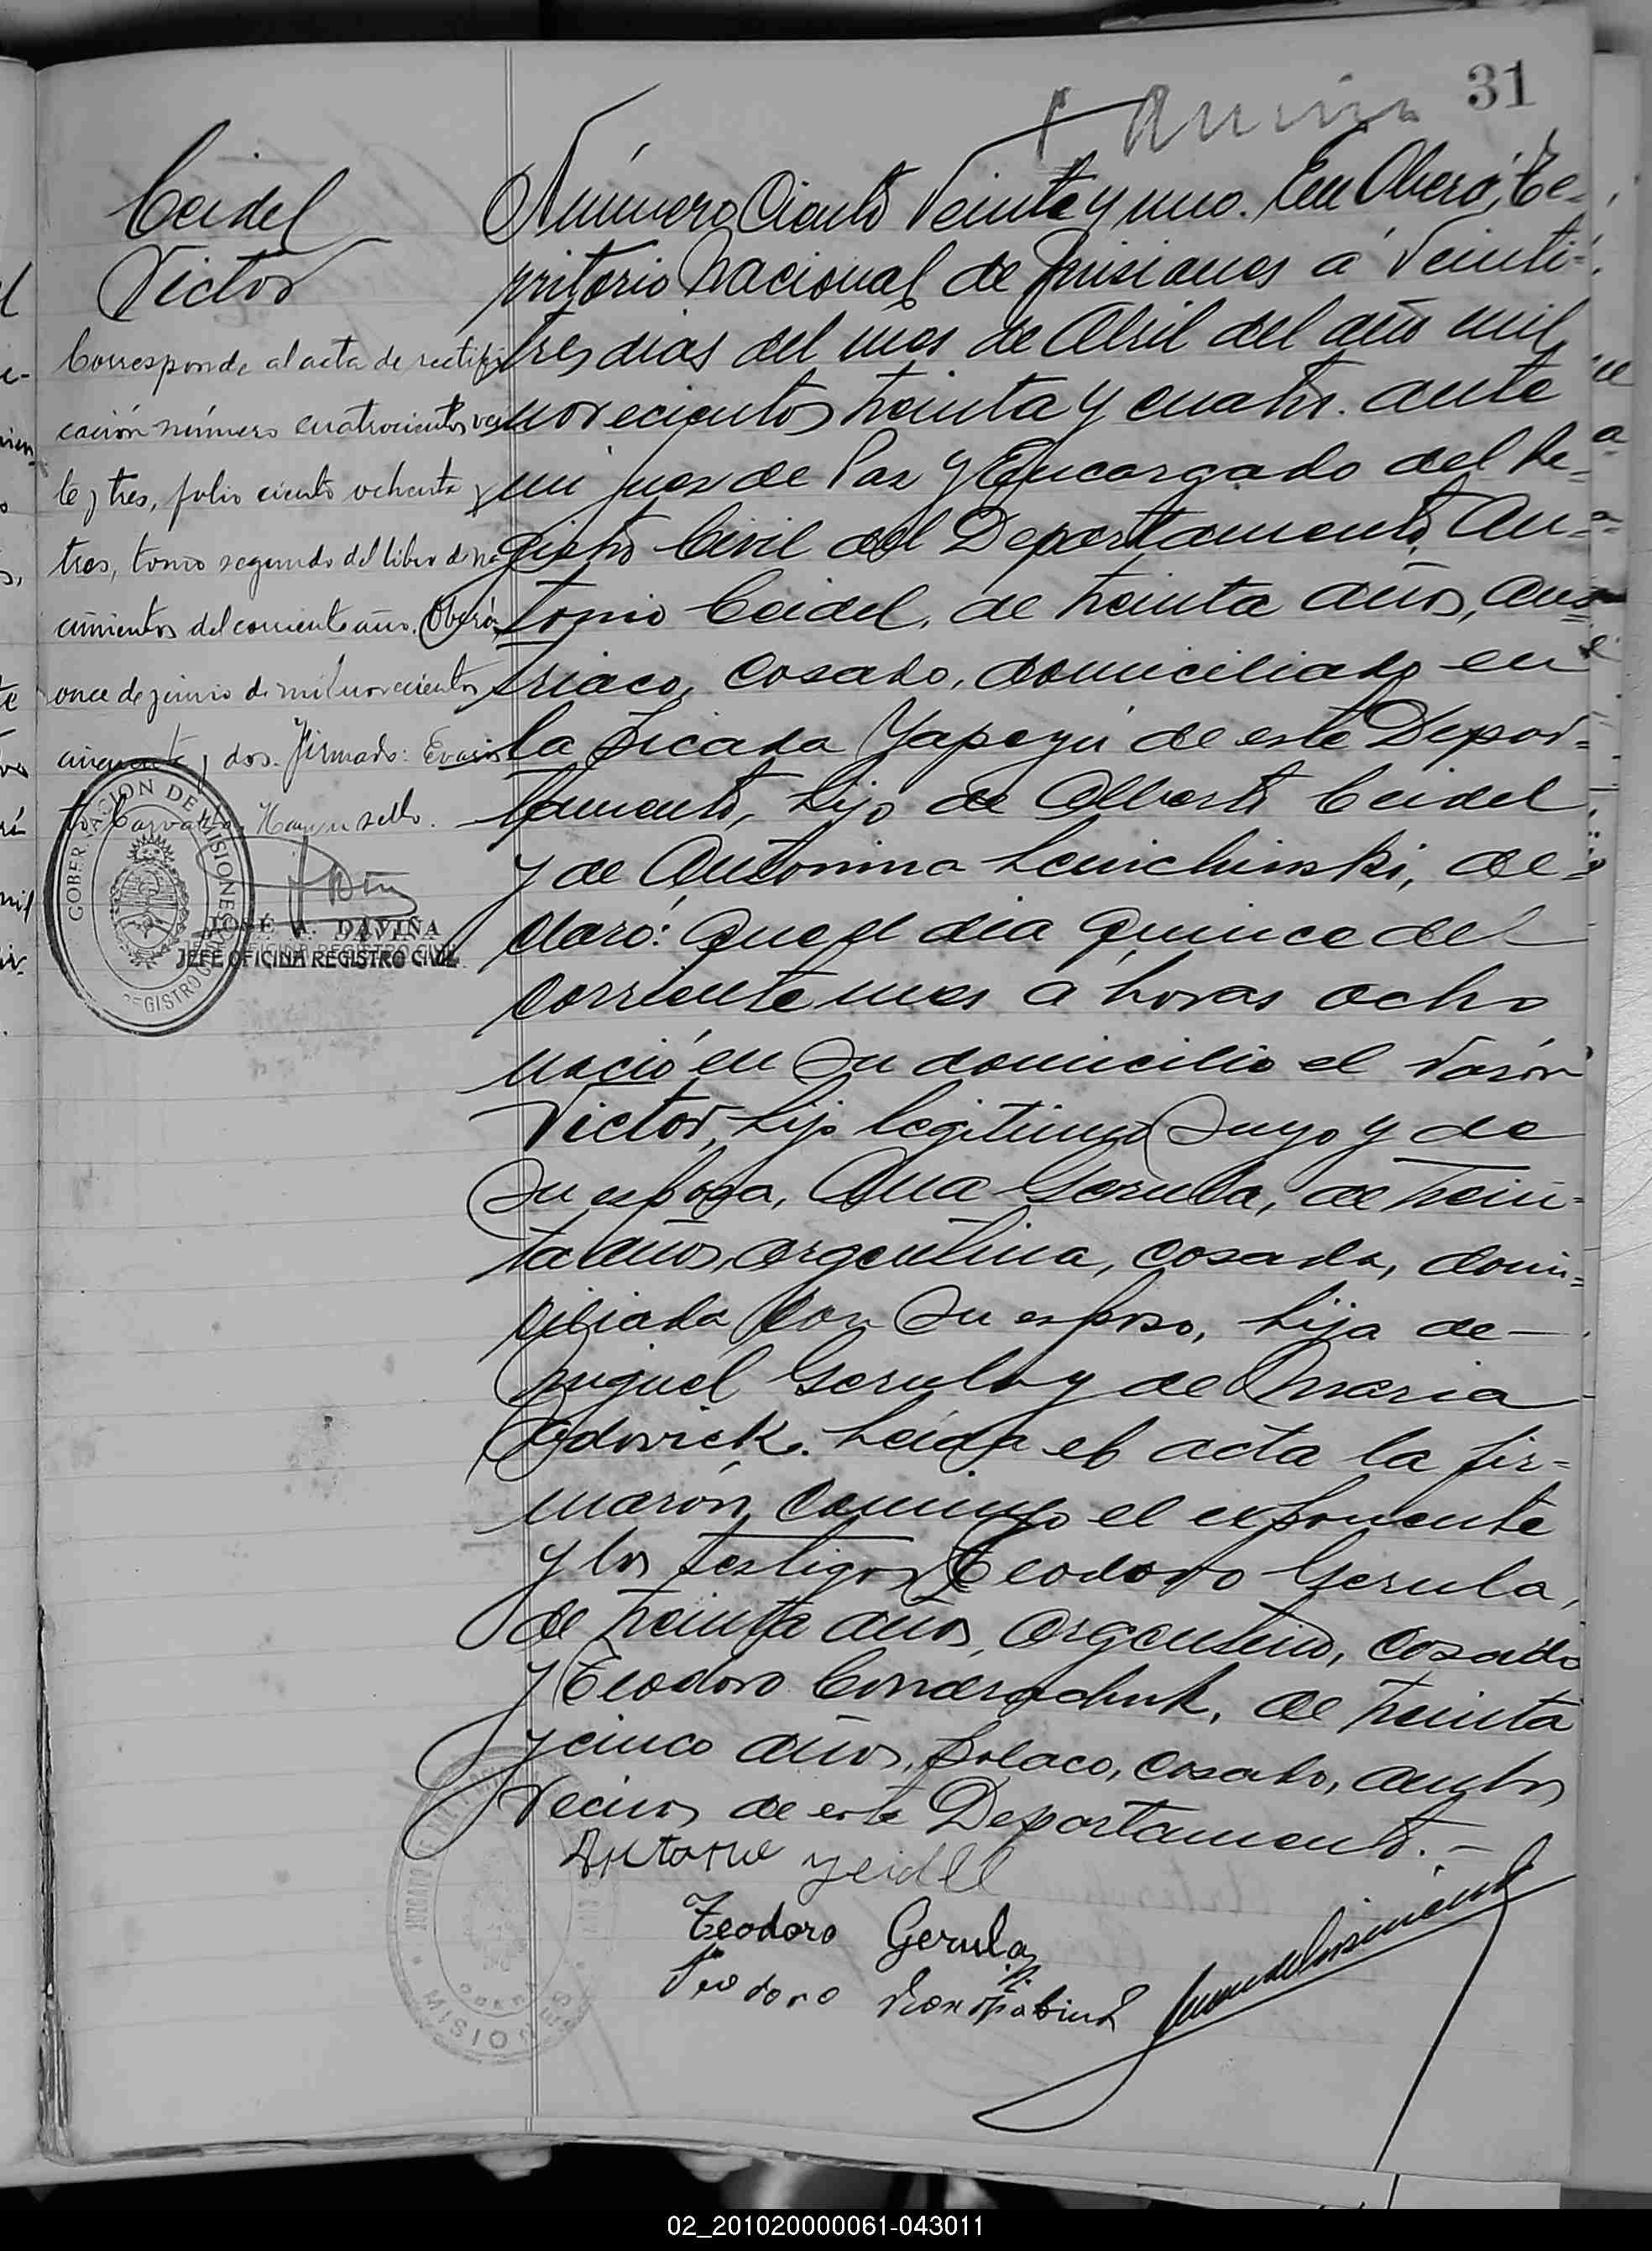 31
Ceidel
Victor
Corresponde al acta de rectifi
cación número cuatrocientos vein
te y tres, folio ciento ochenta y
tres, tomo segundo del libro de na
cimientos del corriente año. Oberá,
once de junio de mil novecientos
cincuenta y dos. Firmado: Evaris
to Carvallo. Hay un sello.
GOBERNACION DE MISIONES
REGISTRO
JOSÉ A. DAVIÑA
JEFE OFICINA REGISTRO CIVIL
Número Ciento Veinte y uno. En Oberá, Te-
rritorio Nacional de Misiones a Veinti-
tres dias del mes de Abril del año mil
novecientos treinta y cuatro. ante
mi juez de Paz y Encargado del Re-
gistro Civil del Departamento, An-
tonio Ceidel, de treinta años, aus-
triaco, casado, domiciliado en
la Picada Yapeyú de este Depar-
tamento, hijo de Alberto Ceidel
y de Antonina Lewichinski, de-
claró: Que el dia quince del
corriente mes a horas ocho
nació en su domicilio el varón
Victor, hijo legitimo suyo y de
su esposa, Ana Gerula, de trein-
ta años, argentina, casada, domi-
ciliada con su esposo, hija de
Miguel Gerula y de Maria
Leida el acta la fir-
maron conmigo el exponente
y los testigos Teodoro Gerula,
de treinta años, argentino, casado
y Teodoro Condrachuk, de treinta
y cinco años, polaco, casado, ambos
vecinos de este Departamento.-
Antonie Zeidel
Teodoro Gerula
Teodoro
MISIONES
02_201020000061-043011